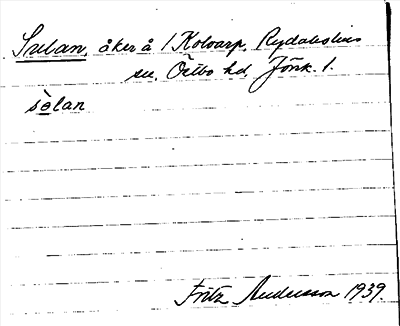 Sulan, åker å 1 Kolvarp, Rydaholms
sn, Östbo hd, Jönk. l.
sòlan
Fritz Andersson 1939.